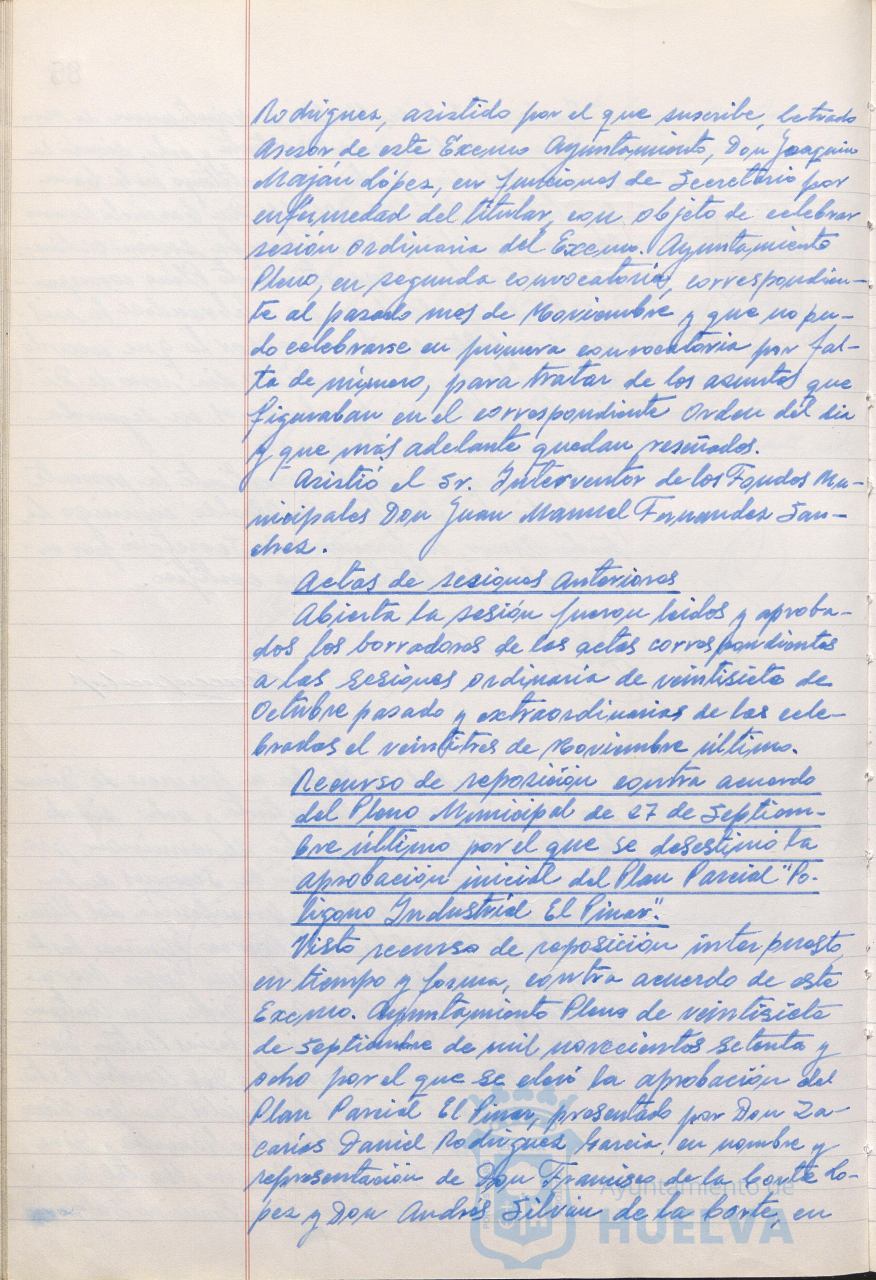 Rodriguez, asistido por el que suscribe, Letrado
Asesor de este Excmo Ayuntamiento, Don Joaquin
Maján López, en funciones de Secretario por
enfermedad del titular, con objeto de celebrar
sesión ordinaria del Excmo. Ayuntamiento
Pleno, en segunda convocatoria, correspondien-
te al pasado mes de Noviembre y que no pu-
do celebrarse en primera convocatoria por fal-
ta de número, para tratar de los asuntos que
figuraban en el correspondiente Orden del dia
y que más adelante quedan reseñados.
Asistió el Sr. Interventor de los Fondos Mu-
nicipales Don Juan Manuel Fernandez San-
chez.
Actas de sesiones anteriores
Abierta la sesión fueron leidos y aproba-
dos los borradores de las actas correspondientes
a las sesiones ordinaria de veintisiete de
Octubre pasado y extraordinarias de las cele-
bradas el veintitres de Noviembre último.
Recurso de reposición contra acuerdo
del Pleno Municipal de 27 de Septiem-
bre último por el que se desestimó la
aprobación inicial del Plan Parcial "Po-
ligono Industrial El Pinar".
Visto recurso de reposición interpuesto,
en tiempo y forma, contra acuerdo de este
Excmo. Ayuntamiento Pleno de veintisiete
de Septiembre de mil novecientos setenta y
ocho por el que se la aprobación del
Plan Parcial El Pinar, presentado por Don Za-
carías Daniel Rodriguez Garcia, en nombre y
representación de Don Francisco de la Corte Lo-
pez y Don Andrés Silván de la Corte, en
Ayuntamiento de
HUELVA